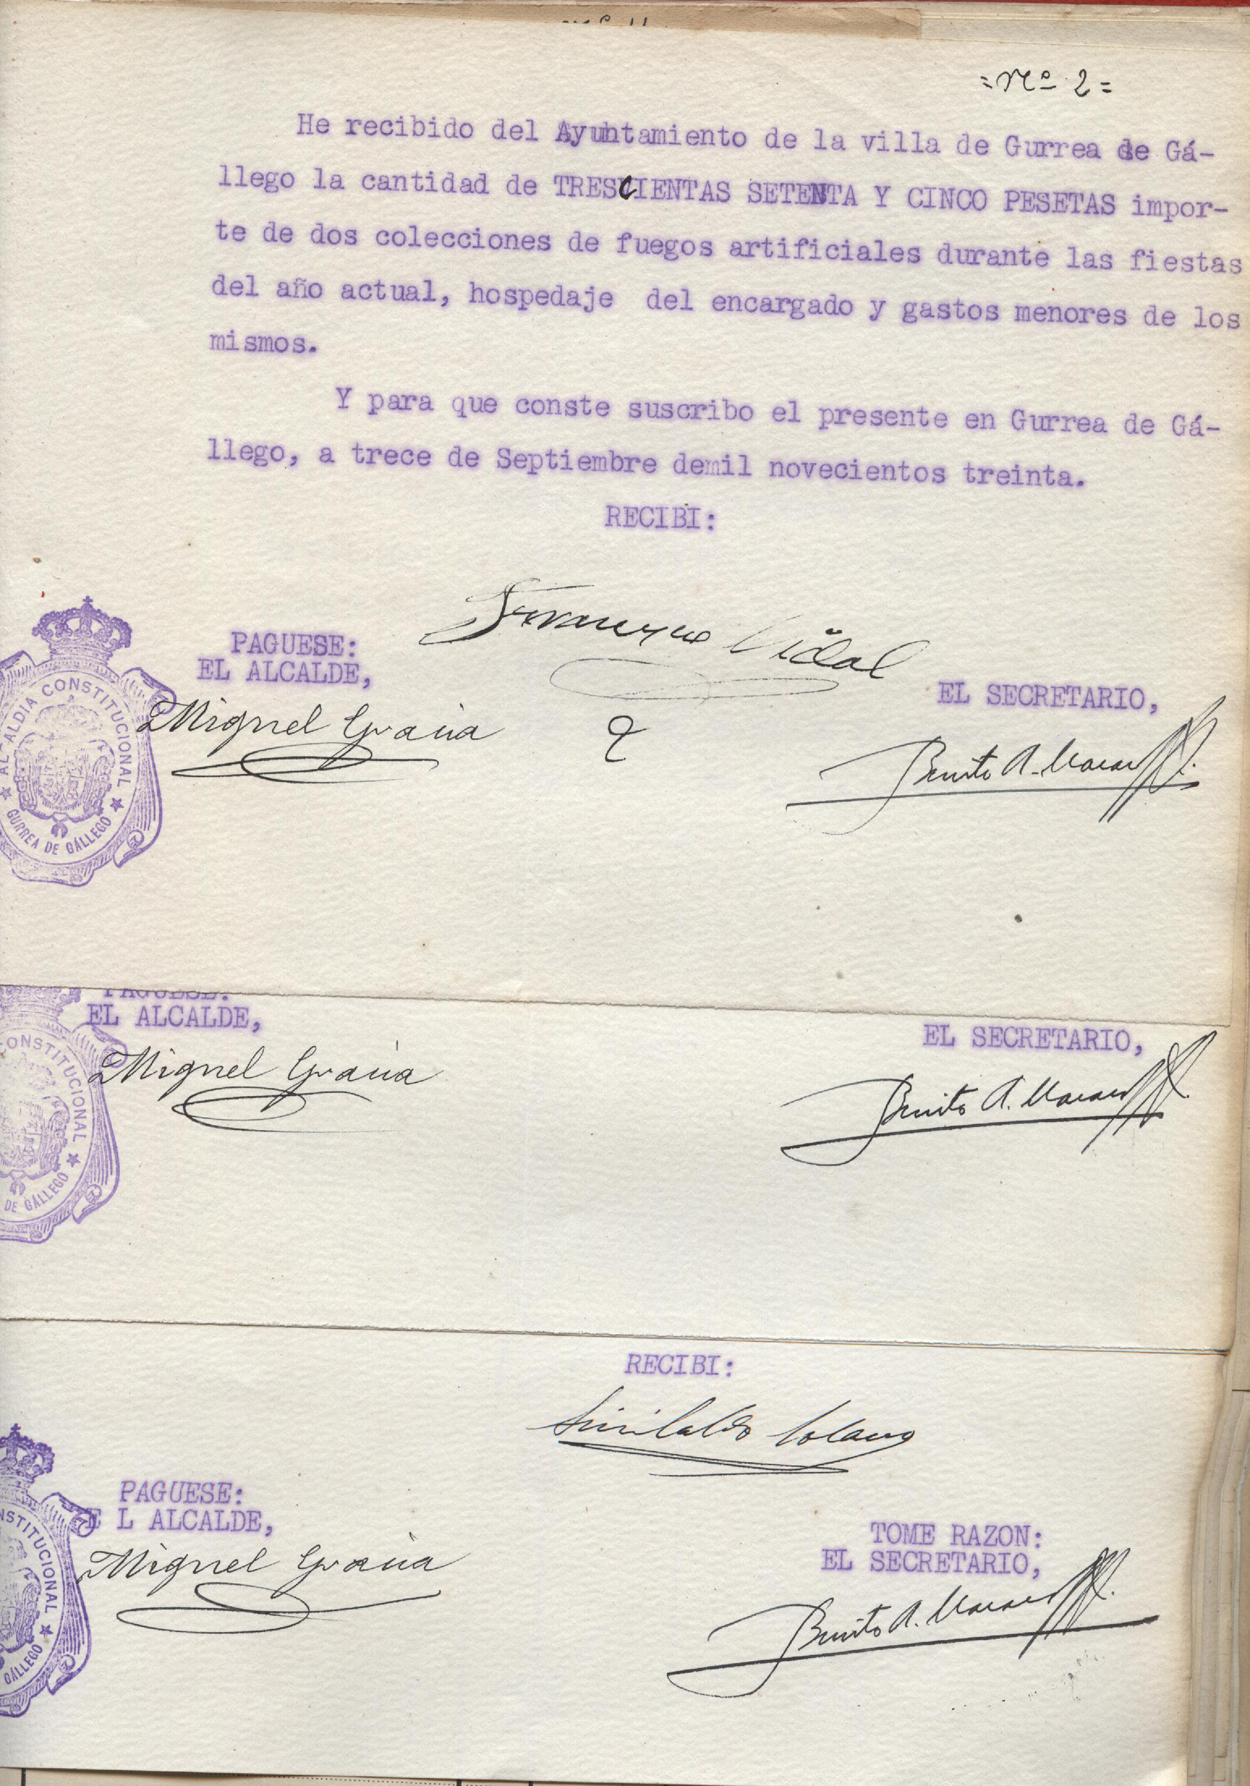 =Nº 2=
He recibido del Ayuntamiento de la villa de Gurrea de Gá-
llego la cantidad de TRESCIENTAS SETENTA Y CINCO PESETAS impor-
te de dos colecciones de fuegos artificiales durante las fiestas
del año actual, hospedaje del encargado y gastos menores de los
mismos.
Y para que conste suscribo el presente en Gurrea de Gá-
llego, a trece de Septiembre demil novecientos treinta.
RECIBI:
Francisco Vidal
PAGUESE:
EL ALCALDE,
Miguel Gracia
EL SECRETARIO,
Benito A.
ALCALDIA CONSTITUCIONAL
GURREA DE GÁLLEGO
PAGUESE:
EL ALCALDE,
Miguel Gracia
EL SECRETARIO,
Benito A.
CONSTITUCIONAL
DE GÁLLEGO
RECIBI:
Solano
PAGUESE:
E L ALCALDE,
Miguel Gracia
TOME RAZON:
EL SECRETARIO,
Benito A.
NSTITUCIONAL
GÁLLEGO